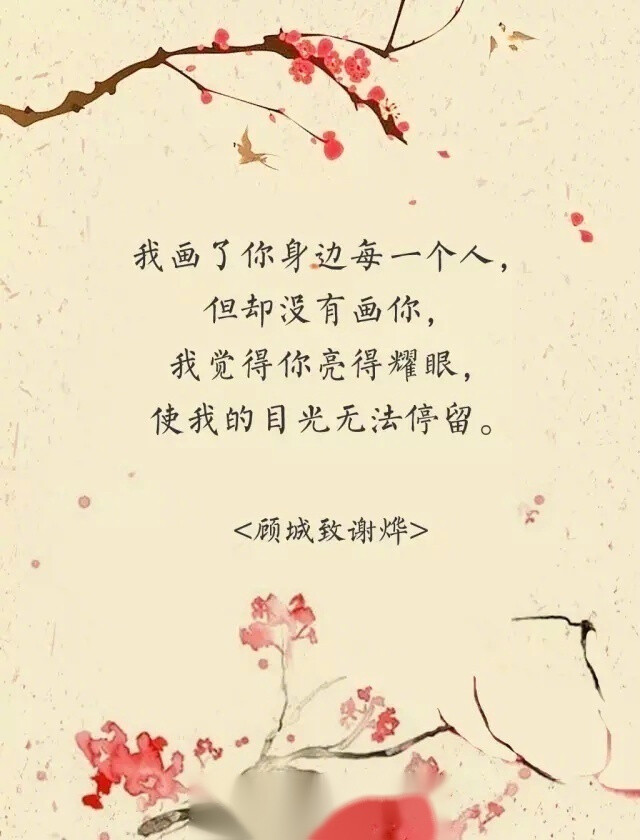 我画了你身边每一个人，
但却没有画你，
我觉得你亮得耀眼，
使我的目光无法停留。
<顾城致谢烨>